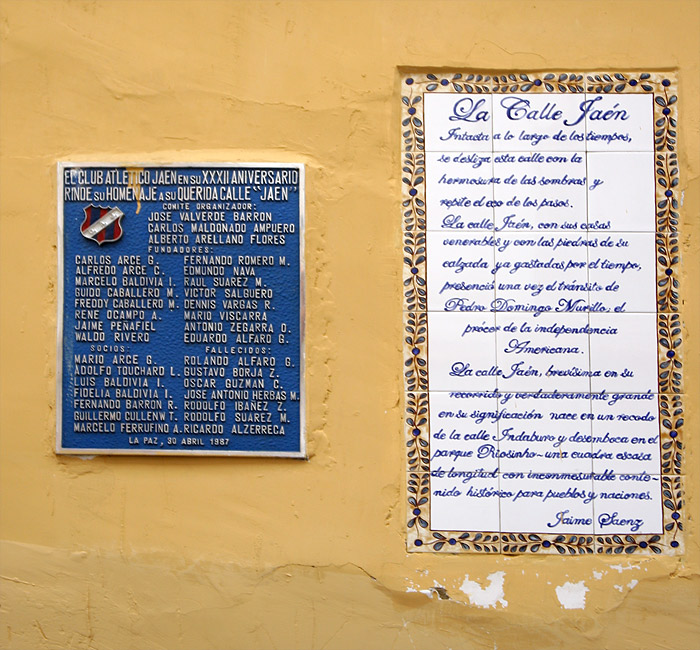 EL CLUB ATLETICO JAEN EN SU XXXII ANIVERSARIO
RINDE SU HOMENAJE A SU QUERIDA CALLE "JAEN"
COMITE ORGANIZADOR:
JOSE VALVERDE BARRON
CARLOS MALDONADO AMPUERO
ALBERTO ARELLANO FLORES
FUNDADORES:
CARLOS ARCE G. FERNANDO ROMERO M.
ALFREDO ARCE C. EDMUNDO NAVA
MARCELO BALDIVIA I. RAUL SUAREZ M.
GUIDO CABALLERO M. VICTOR SALGUERO
FREDDY CABALLERO M. DENNIS VARGAS R.
RENE OCAMPO A. MARIO VISCARRA
JAIME PEÑAFIEL ANTONIO ZEGARRA O.
WALDO RIVERO EDUARDO ALFARO G.
SOCIOS: FALLECIDOS:
MARIO ARCE G. ROLANDO ALFARO G.
ADOLFO TOUCHARD L. GUSTAVO BORJA Z.
LUIS BALDIVIA I. OSCAR GUZMAN C.
FIDELIA BALDIVIA I. JOSE ANTONIO HERBAS M.
FERNANDO BARRON R. RODOLFO IBAÑEZ Z.
GUILLERMO CULLEN W T. RODOLFO SUAREZ M.
MARCELO FERRUFINO A. RICARDO ALZERRECA
LA PAZ, 30 ABRIL 1987
La Calle Jaén
Intacta a lo largo de los tiempos,
se desliza esta calle con la
hermosura de las sombras y
repite el eco de los pasos.
La calle Jaén, con sus casas
venerables y con las piedras de su
calzada ya gastadas por el tiempo,
presenció una vez el tránsito de
Pedro Domingo Murillo; el
prócer de la independencia
Americana.
La calle Jaén, brevísima en su
recorrido y verdaderamente grande
en su significación nace en un recodo
de la calle Indaburo y desemboca en el
parque Riosinho - una cuadra escasa
de longitud con inconmesurable conte-
nido histórico para pueblos y naciones.
Jaime Saenz